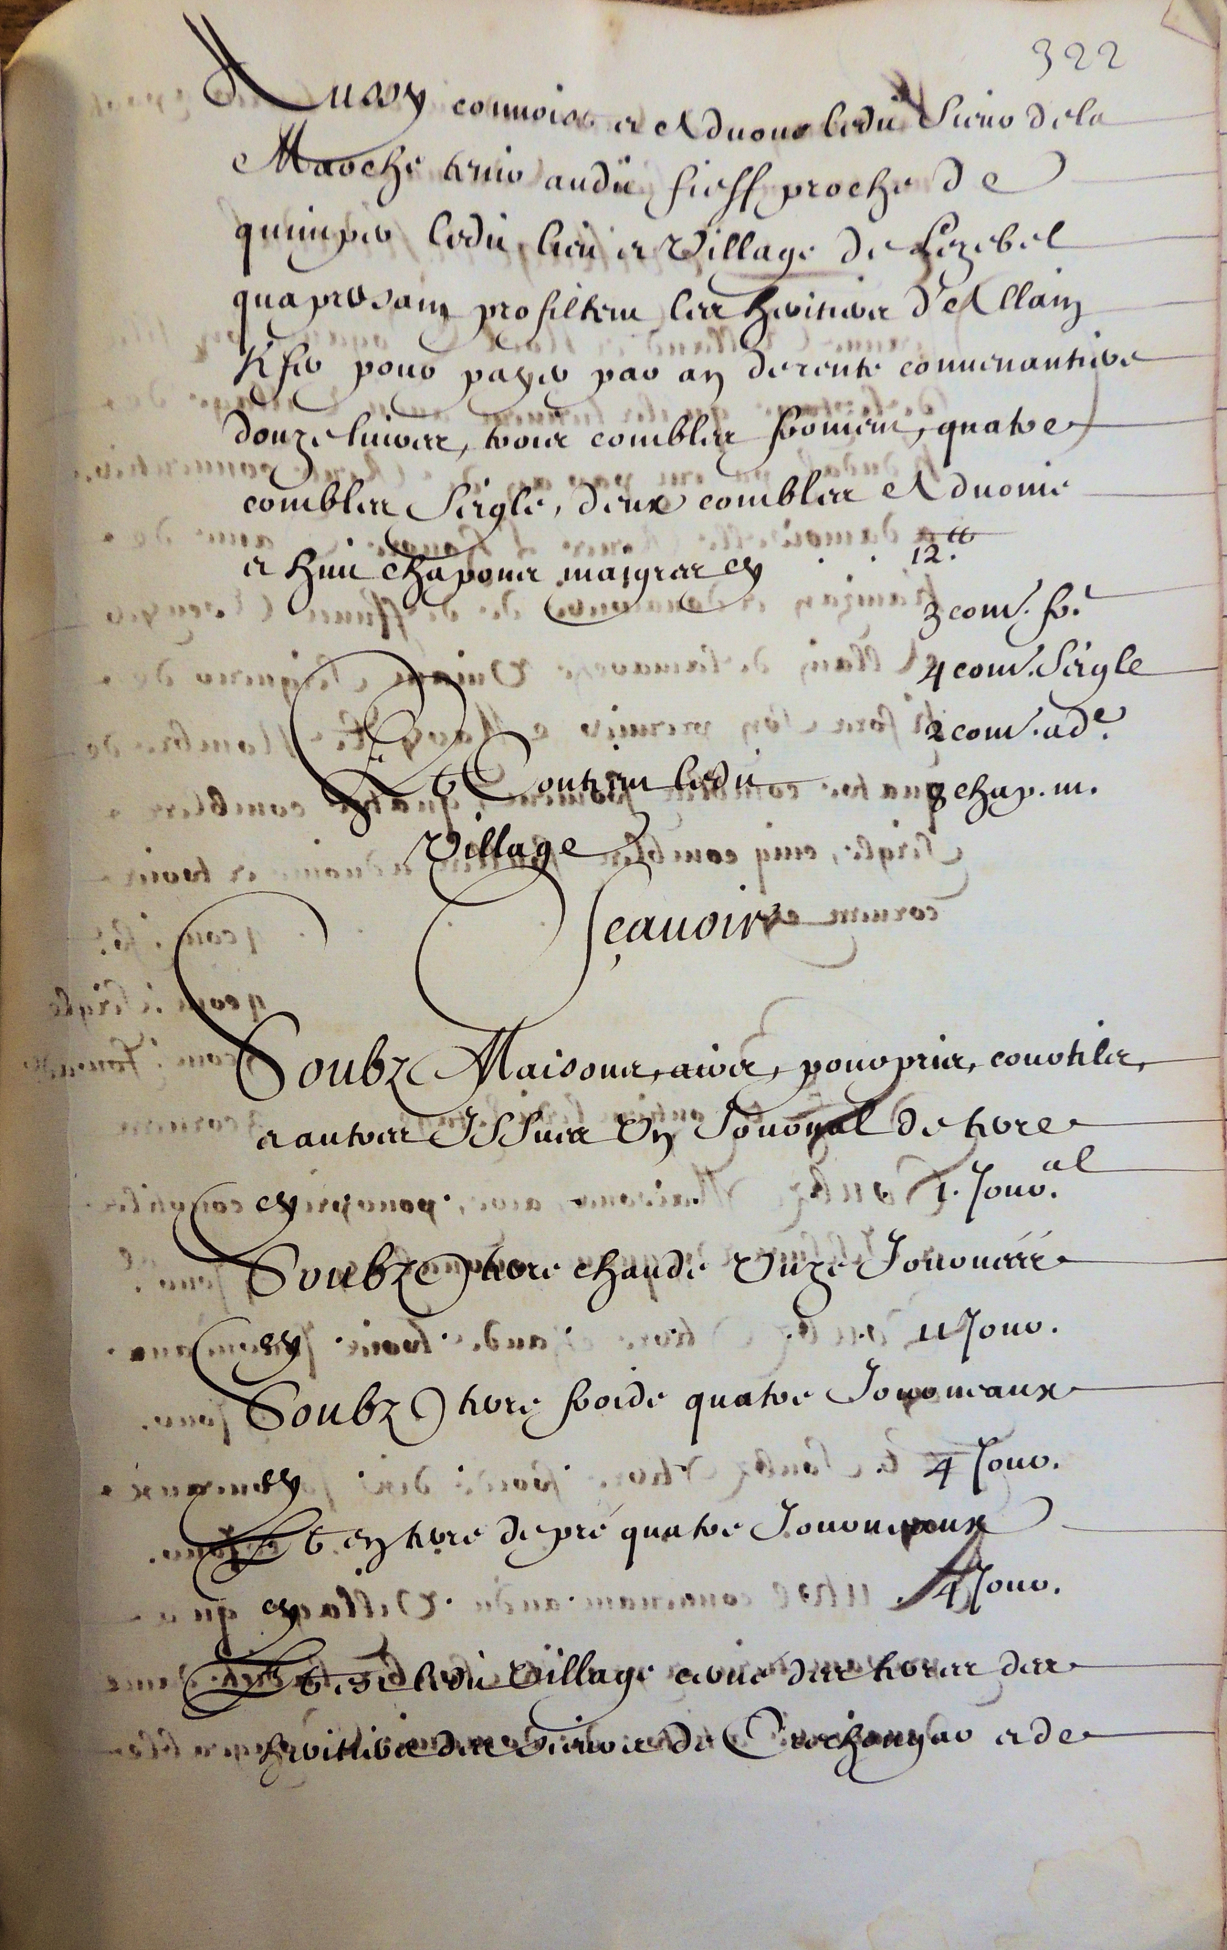 322
Aussy connoist et Advoue ledit Sieur de la
Marche tenir audit fieff proche de
quimper ledit lieu et Village de Lezebel
qua present profittent les heritiers d'Allain
K/fer pour payer par an de rente convenantiere
douze livres, trois combles froment, quatre
combles seigle, deux combles Advoine
et huit chapons maigres cy . . 12.tt
3 com. fr.t
4 com. seigle
2 com. ad.e
8 chap. m.
Et Contient ledit
Village
Sçavoir
Soubz Maisons, aires, pourpris, courtils,
et autres Issues Un Journal de terre
cy 1. Jour.al
Soubz terre chaude Unze Journeux
cy . . . 11 Jour.
Soubz terre froide quatre Journeaux
cy 4 Jour.
Et en terre de pré quatre Journeaux
cy . 4 Jour.
Et est ledit Village cerné des terres des
heritiers des sieurs de et de